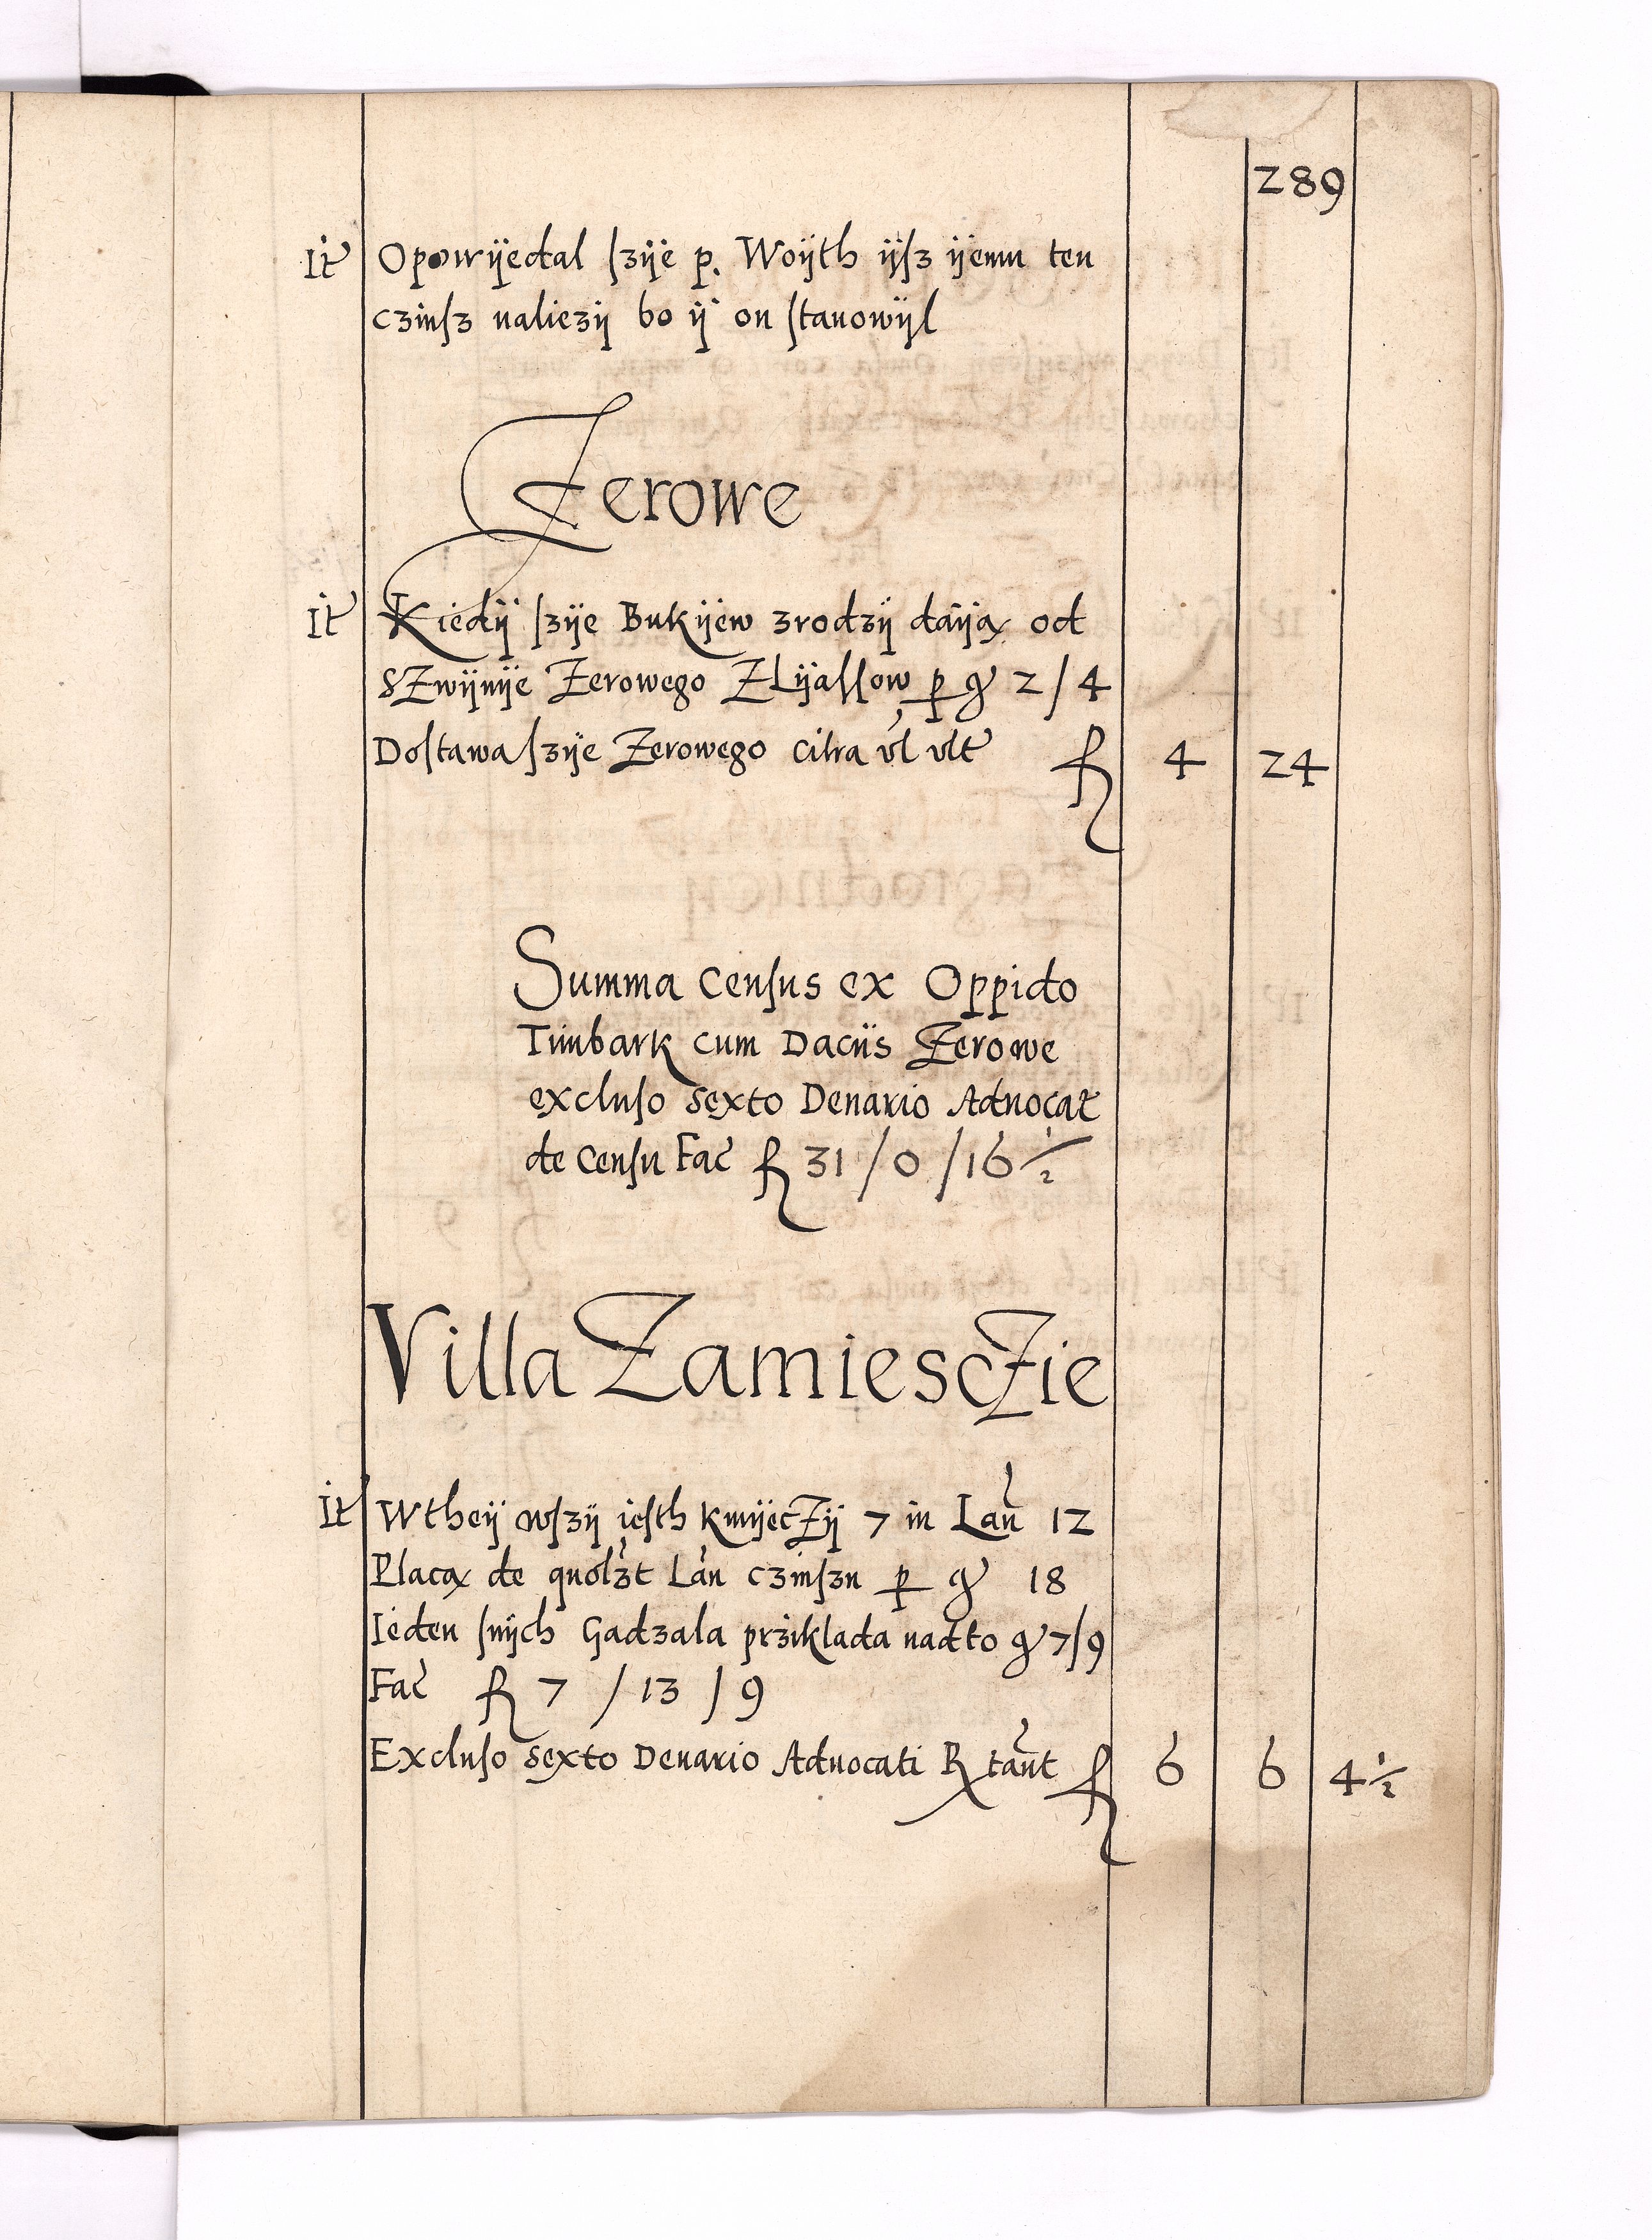 289
It Opowÿedal szÿe p. Woÿth ÿsz ÿemu ten
czinsz naliezÿ bo ÿ on stanowÿl
Zerowe
It Kiedÿ szÿe Bukÿew zrodzÿ daÿą od
SZwÿnÿe Zerowego ZLÿassow p gr 2 / 4
Dostawa szÿe Zerowego citra vl vlt fl 4 24
Summa Census ex Oppido
Timbark cum Daciis Zerowe
excluso sexto Denario Aduocat
de Censu Fac fl 31 / 0 / 16 ½
Villa ZamiescZie
It Wtheÿ wszÿ iesth kmÿecZÿ 7 in Lan 12
Placą de quolzt Lan czinszu p gr 18
Ieden snÿch Gadzala prziklada nadto gr 7/9
Fac fl 7 / 13 / 9
Excluso sexto Denario Aduocati R tant fl 6 6 4 ½